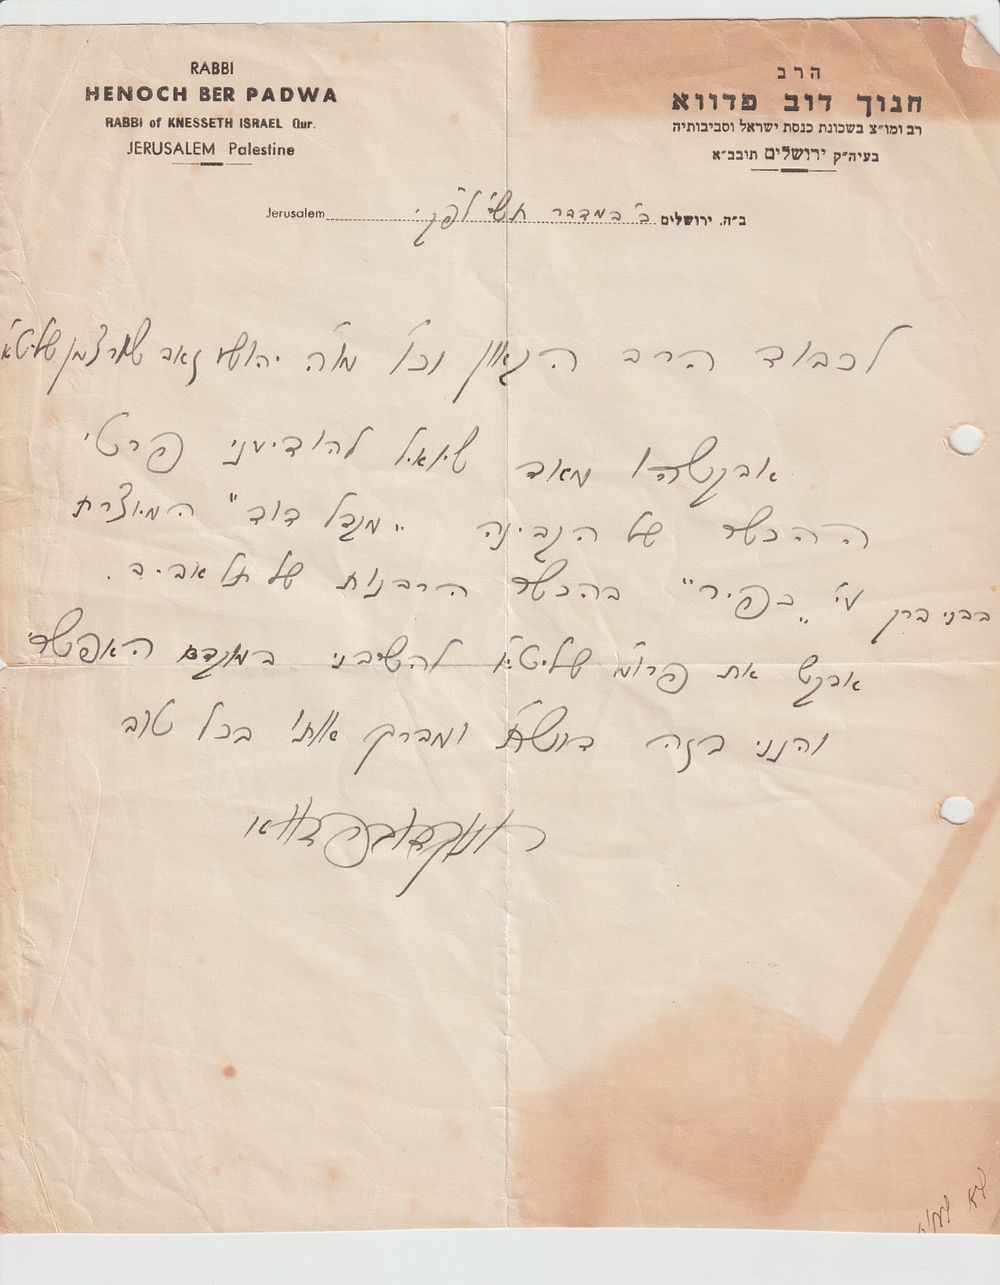 RABBI
HENOCH BER PADWA
RABBI of KNESSETH ISRAEL Qur.
JERUSALEM Palestine
הרב
חנוך דוב פדווא
רב ומו״צ בשכונת כנסת ישראל וסביבותיה
בעיה״ק ירושלים תובב״א
ב״ה. ירושלים ב' במדבר תש״י לפ״ק. Jerusalem
לכבוד הרב הגאון וכו' מו"ה יהושע זאב שווארצמן שליט"א
אבקשהו מאד שיואיל להודיעני פרטי
ההכשר של הגבינה „מגדל דוד" המיוצרת
בבני ברק ע"י „כפיר" בהכשר הרבנות של תל אביב.
אבקש את פרומ"ע שליט"א להשיבני במוקדם האפשרי
והנני בזה דושת"ה ומברך אותו בכל טוב
חנוך דוב פדווא